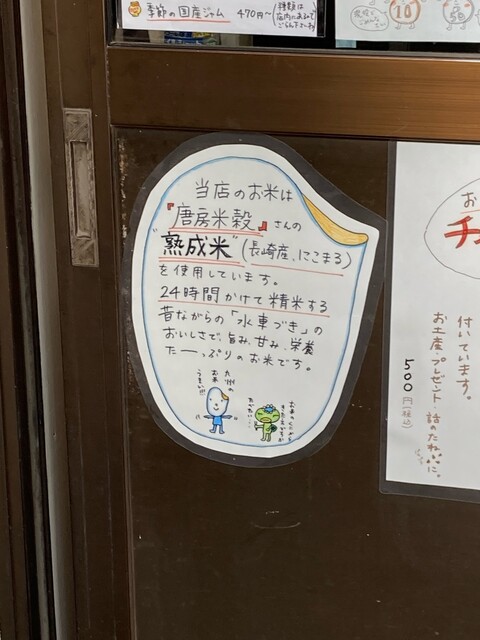 季節の国産ジャム 470円~
種類は
店内にあるので
ごらん下さい
10
50
当店のお米は
『唐房米穀』さんの
"熟成米"(長崎産、にこまる)
を使用しています。
24時間かけて精米する
昔ながらの「水車づき」の
おいしさで、旨み、甘み、栄養
た――っぷりのお米です。
九州の
お米
うまい!!!
お
チ
付いています。
お土産、プレゼント、話のたねに。
500円(税込)